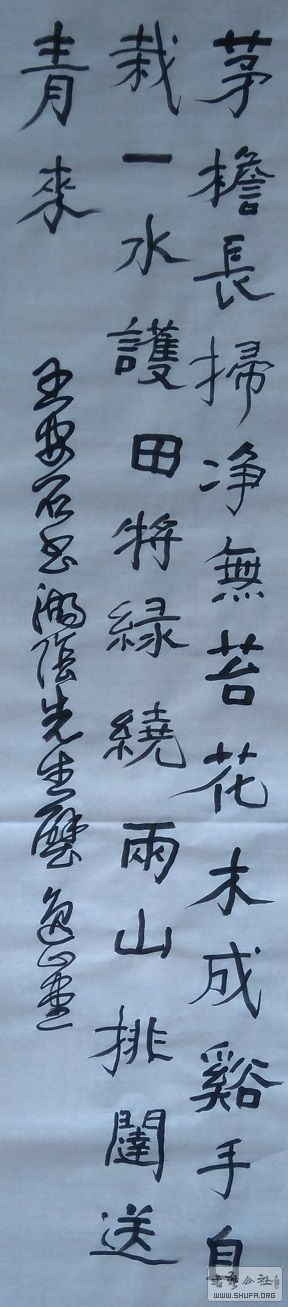 茅檐長掃净無苔花木成谿手自
栽一水護田将緑繞兩山排闥送
青來 王安石书湖陰先生壁
WWW.SHUFA.ORG